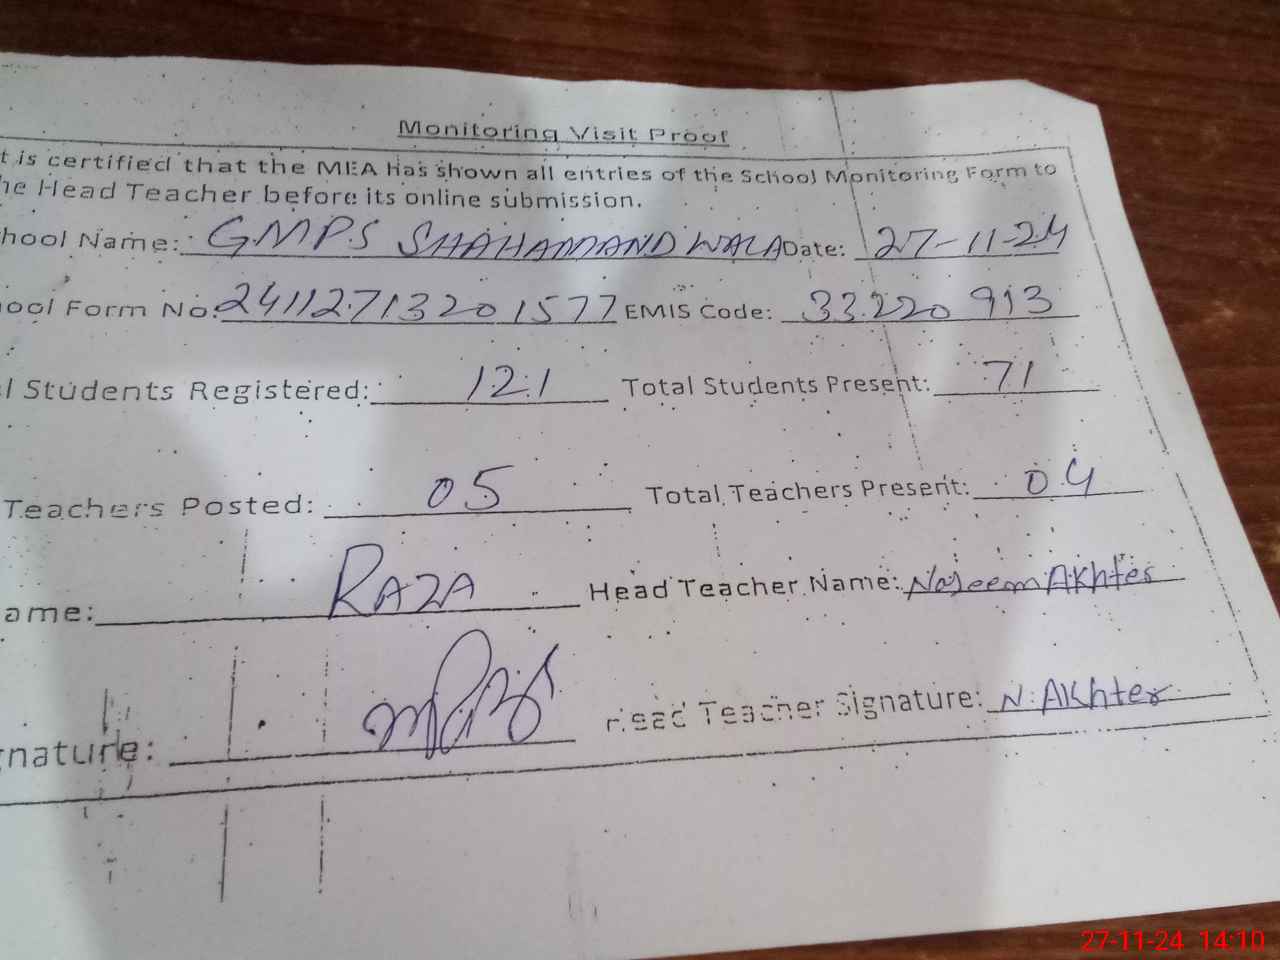 Monitoring Visit Proof
t is certified that the MEA has shown all entries of the School Monitoring Form to
he Head Teacher before its online submission.
hool Name: GMPS SHAHAMAND WALA Date: 27-11-24
ool Form No: 241127133201577 EMIS Code: 33220913
l Students Registered: 121 Total Students Present: 71
Teachers Posted: 05 Total Teachers Present: 04
ame: RAZA Head Teacher Name: Naseem Akhter
gnature: Head Teacher Signature: N. Akhter
27-11-24 14:10